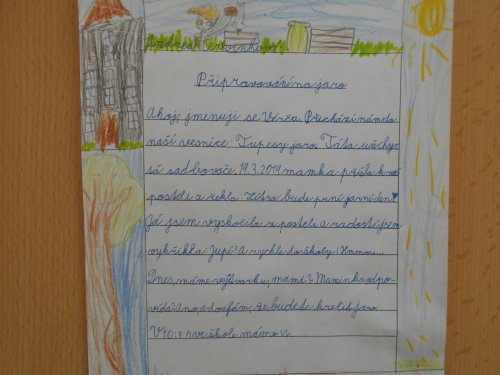 Andrea Červenáková
Připravování na jaro
Ahoj, jmenuji se Verža. Přichází nám do
naší vesnice Tupesy jaro. Táta uchys-
tá sadbovače. 19.3.2019 mamka přišla k mo
postele a řekla Zítra bude první jarní den!
Já jsem vyskočila z postele a radostí jsem
vykřikla: Jupí! A rychle do školy! Hmm...
Dnes máme výtvarku, mami? Maminka odpo-
vídá: Ano, a doufám, že budete kreslit jaro
V 10:00 ve škole mámo